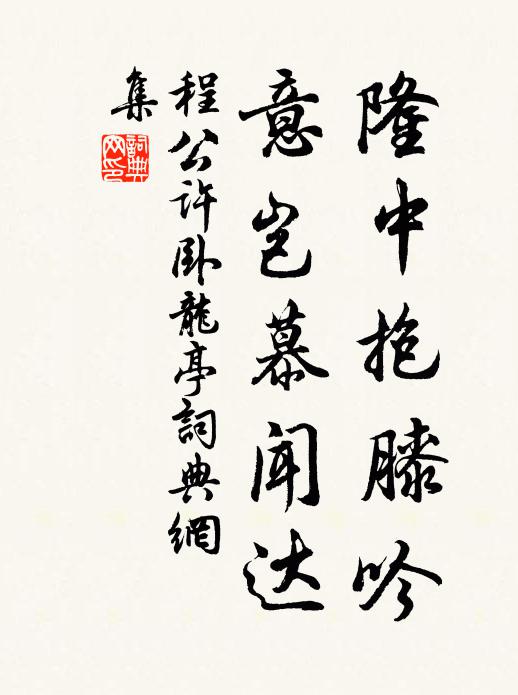 隆中抱膝吟
意岂慕闻达
程公许卧龍亭詞典網
集
詞典网印